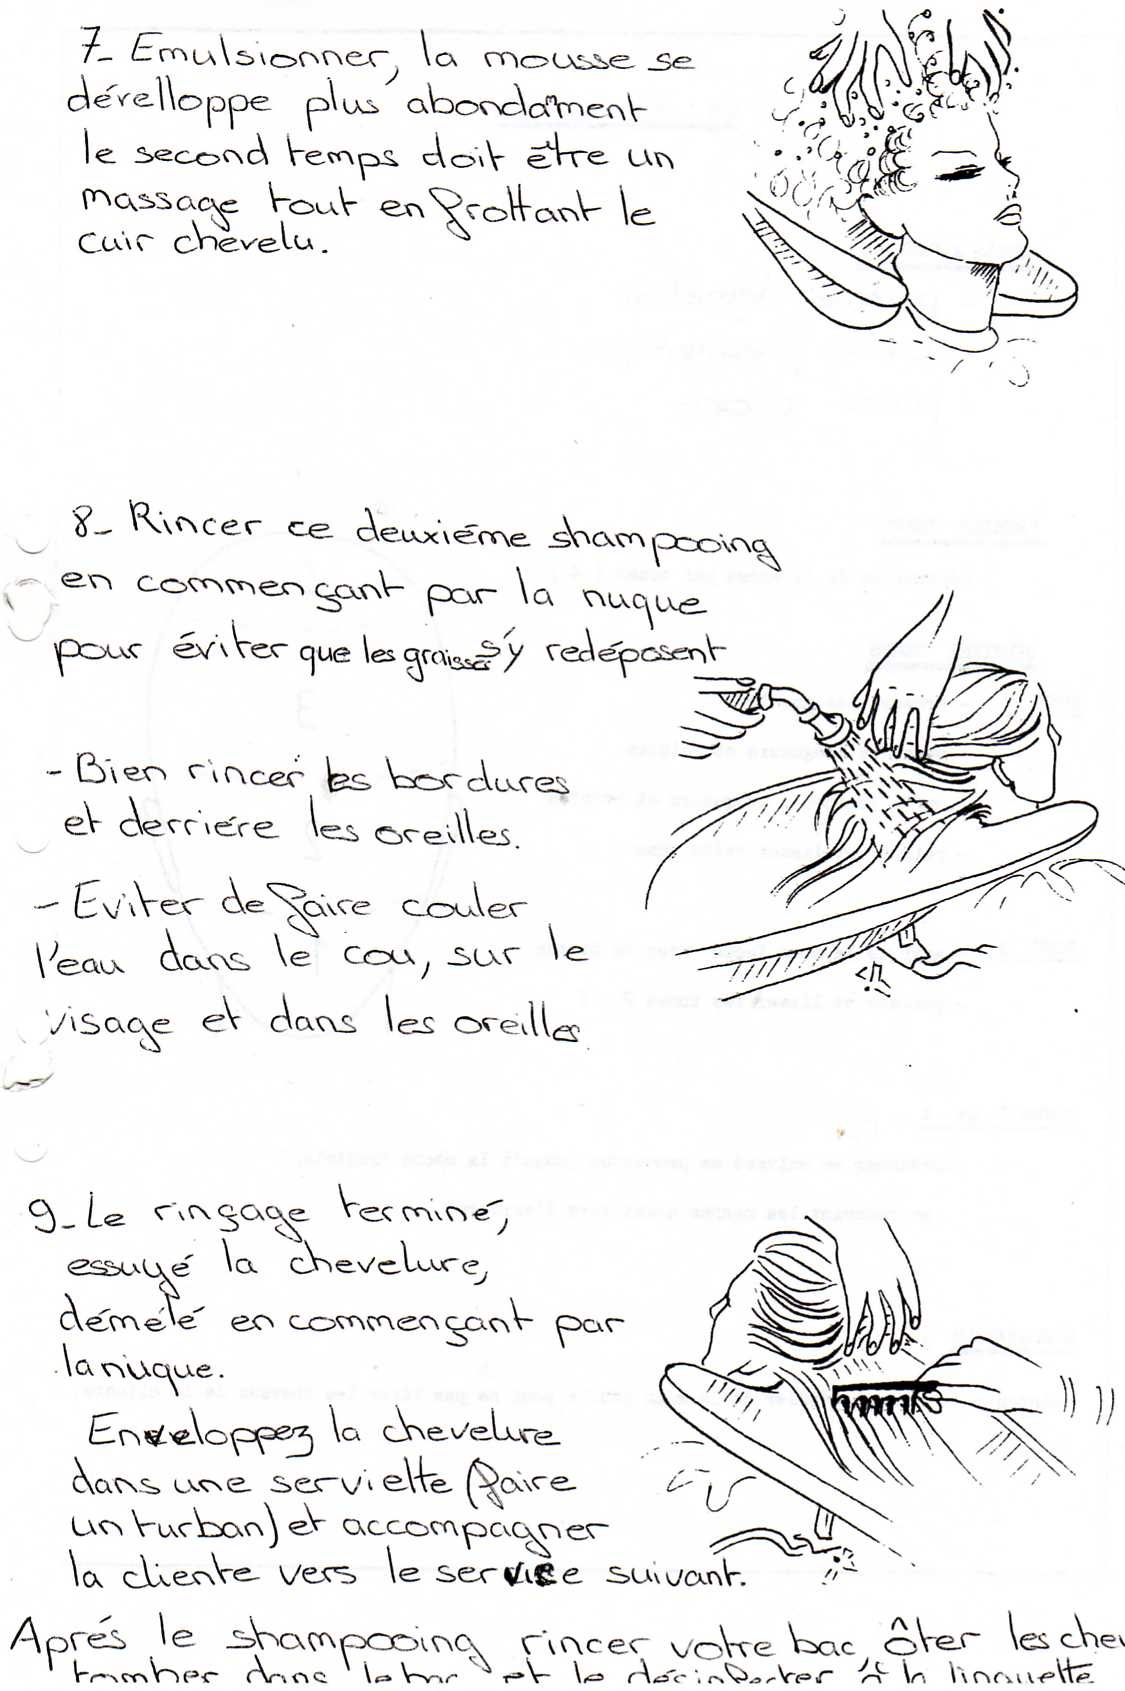 7- Emulsionner, la mousse se
dévelloppe plus abondament
le second temps doit être un
massage tout en frottant le
cuir chevelu.
8- Rincer ce deuxiéme shampooing
en commençant par la nuque
pour éviter que les graisses s'y redéposent
- Bien rincer les bordures
et derriére les oreilles.
- Eviter de faire couler
l'eau dans le cou, sur le
visage et dans les oreilles
9- Le rinçage terminé,
essuyé la chevelure,
démélé en commençant par
la nuque.
Enveloppez la chevelure
dans une serviette (faire
un turban) et accompagner
la cliente vers le service suivant.
Aprés le shampooing rincer votre bac, ôter les chev
tomber dans le bac et le désinfecter à la lingette